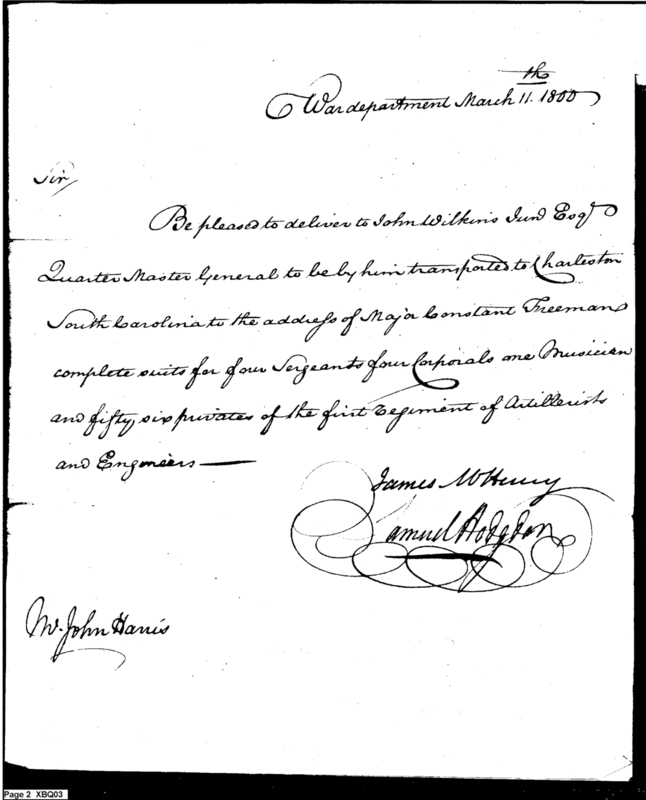 War department March 11th. 1800
Sir,
Be pleased to deliver to John Wilkins Junr Esqr
Quarter Master General to be by him transported to Charleston
South Carolina to the address of Major Constant Freeman
complete suits for four Sergeants four Corporals one Musician
and fifty, six privates of the first Regiment of Artillerists
and Engineers —
James McHenry
Samuel Hodgdon
Mr. John Harris
Page 2 XBQ03